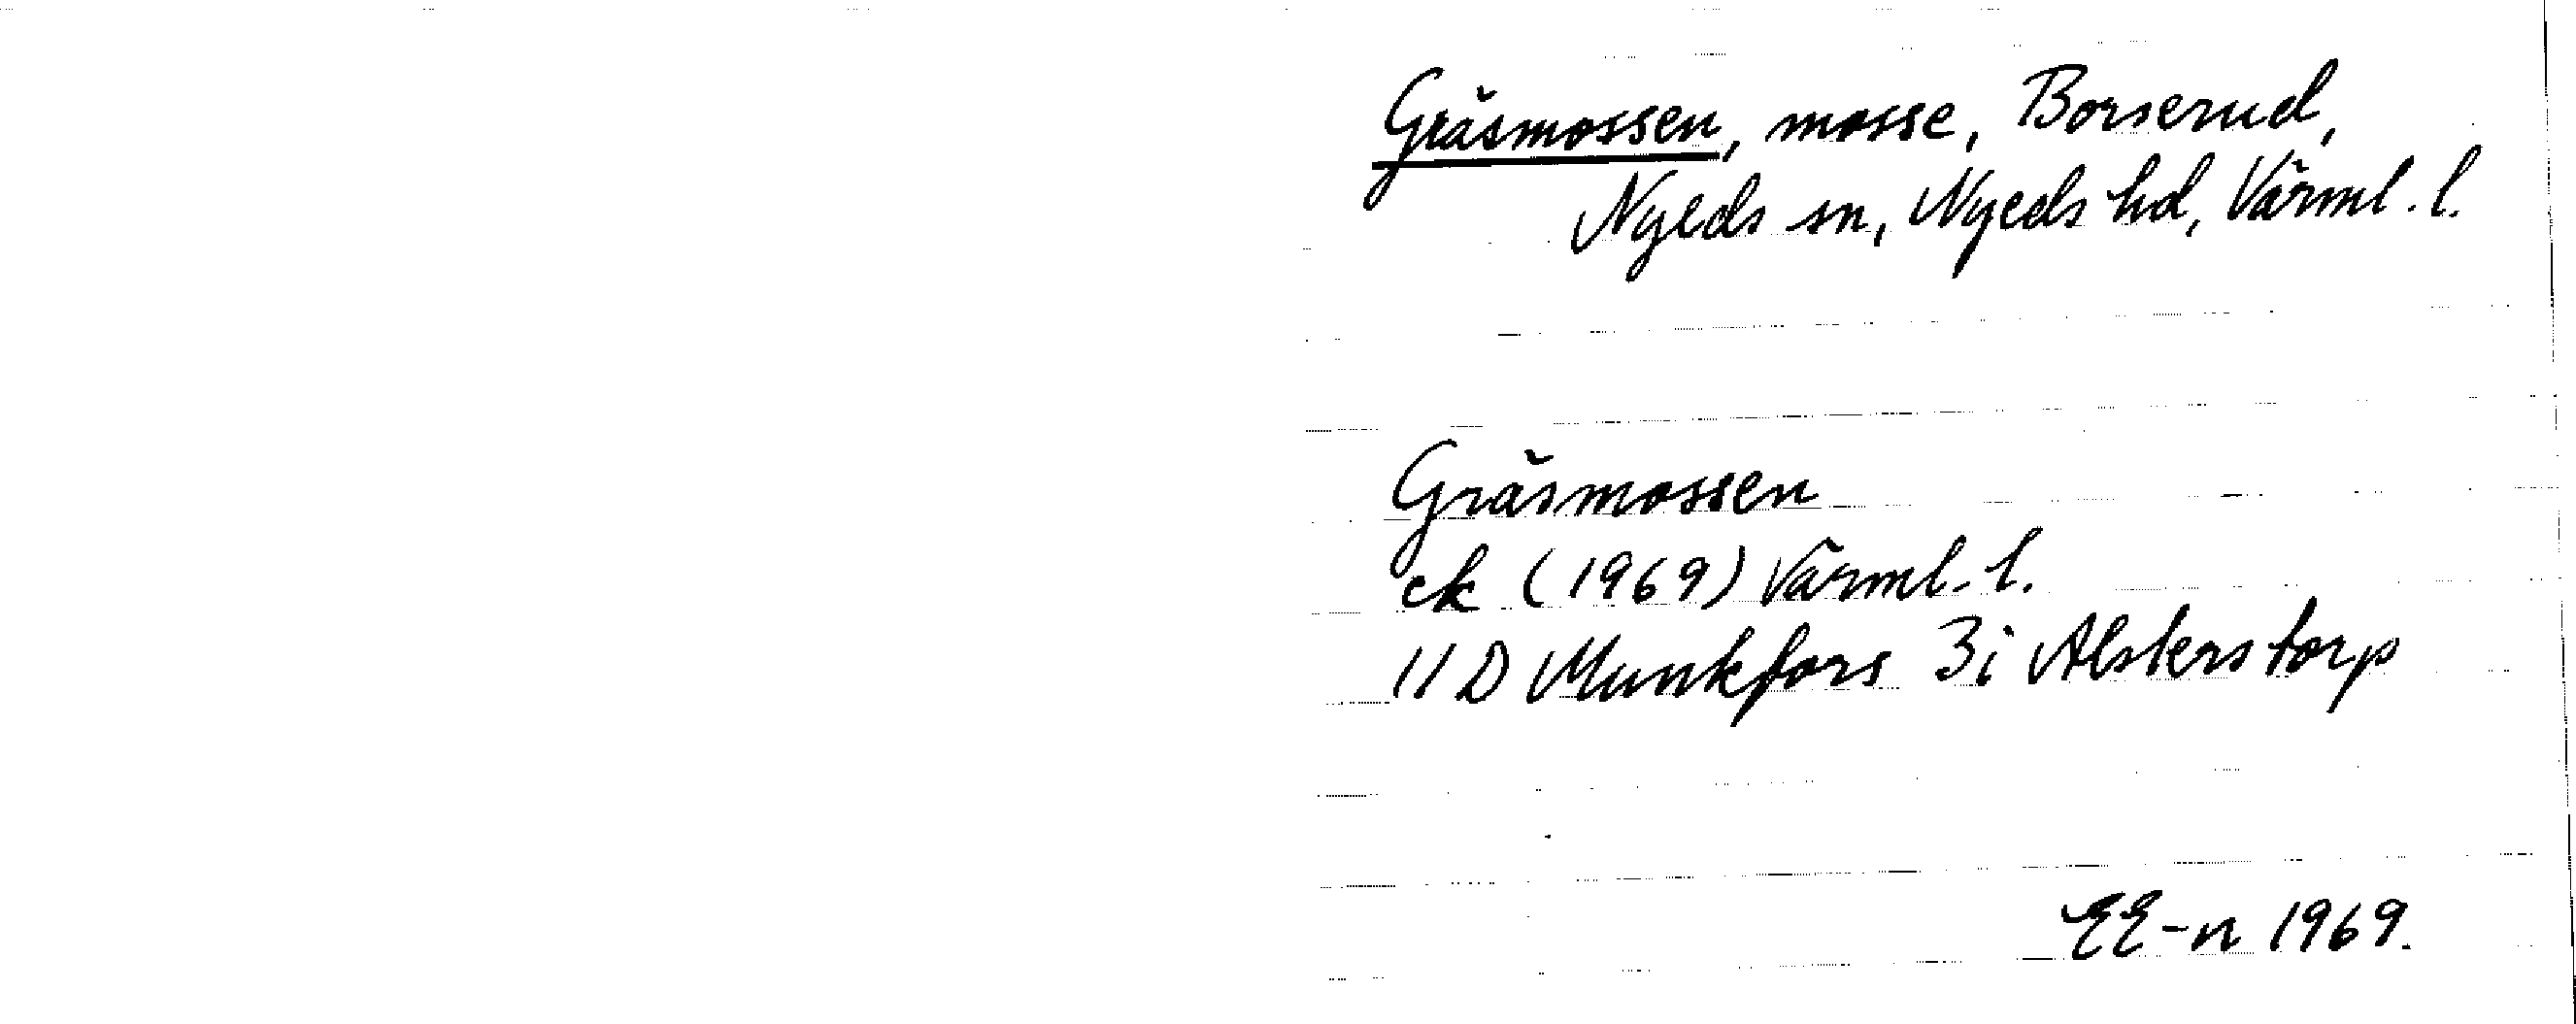 Gräsmossen, mosse, Borserud,
Nyeds sn, Nyeds hd, Värml. l.
Gräsmossen
ek (1969) Värml. l.
11 D Munkfors 3i Alsterstorp
EE-n 1969.